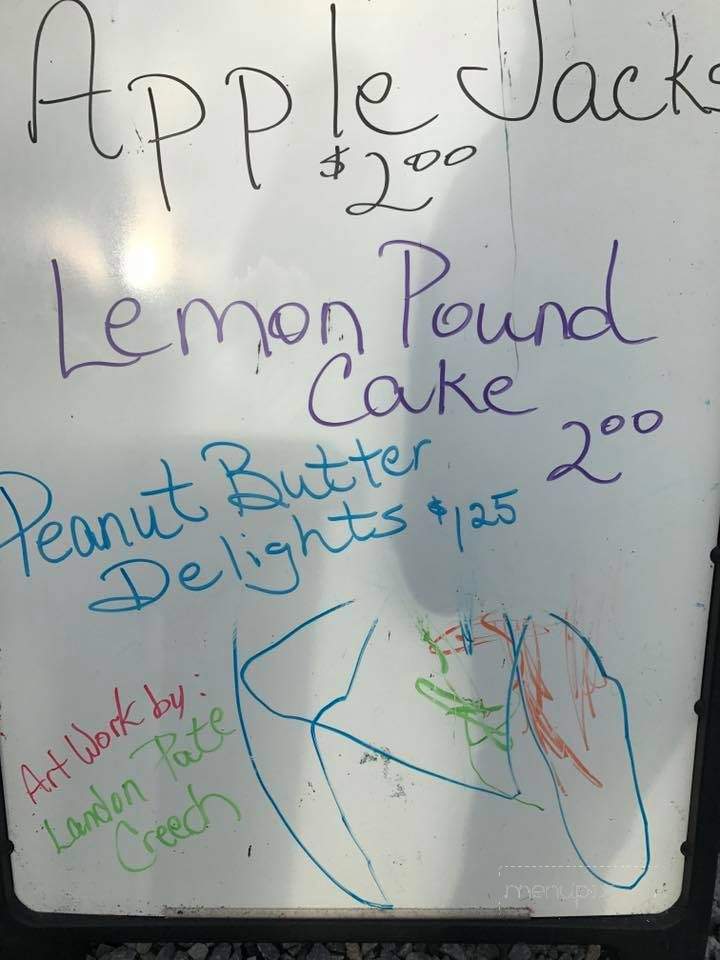 Apple Jacks
$2.00
Lemon Pound
Cake
2.00
Peanut Butter
Delights $1.25
Art Work by:
Landon Pate
Creech
menupix